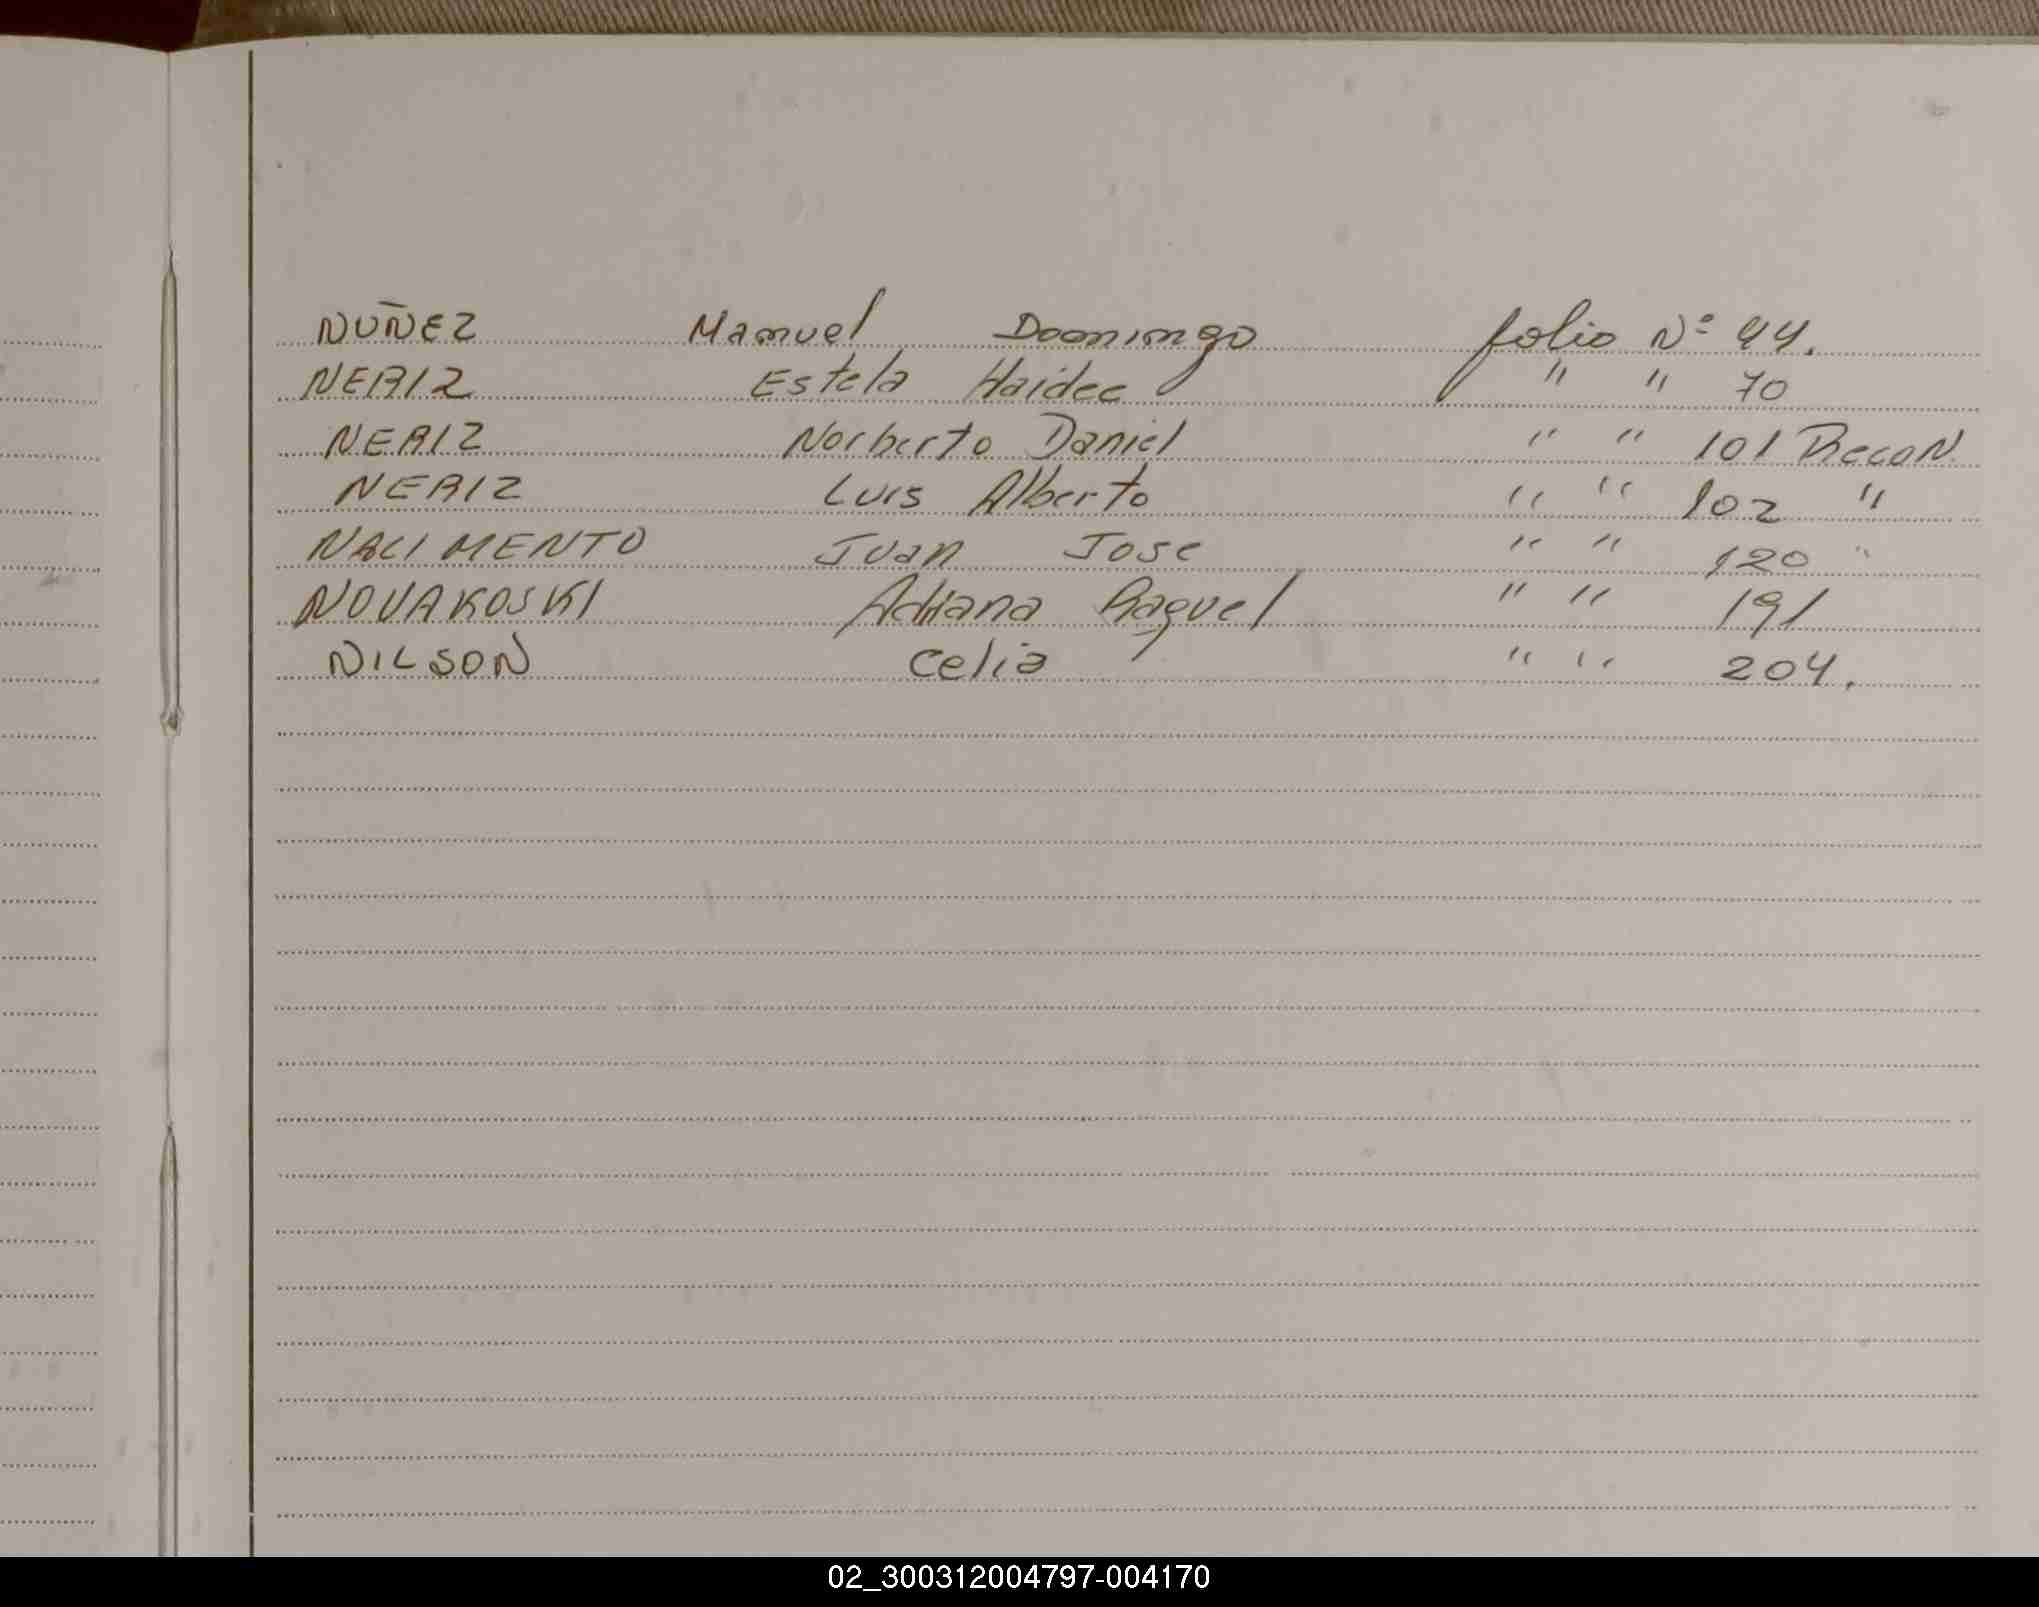 NUÑEZ Manuel Doomingo folio Nº 44.
NERIZ Estela Haidee " " 70
NERIZ Norberto Daniel " " 101 RecoN.
NERIZ Luis Alberto " " 102 "
NACIMENTO Juan Jose " " 120 "
NOVAKOSKI Adriana Raquel " " 191
NILSON Celia " " 204.
02_300312004797-004170